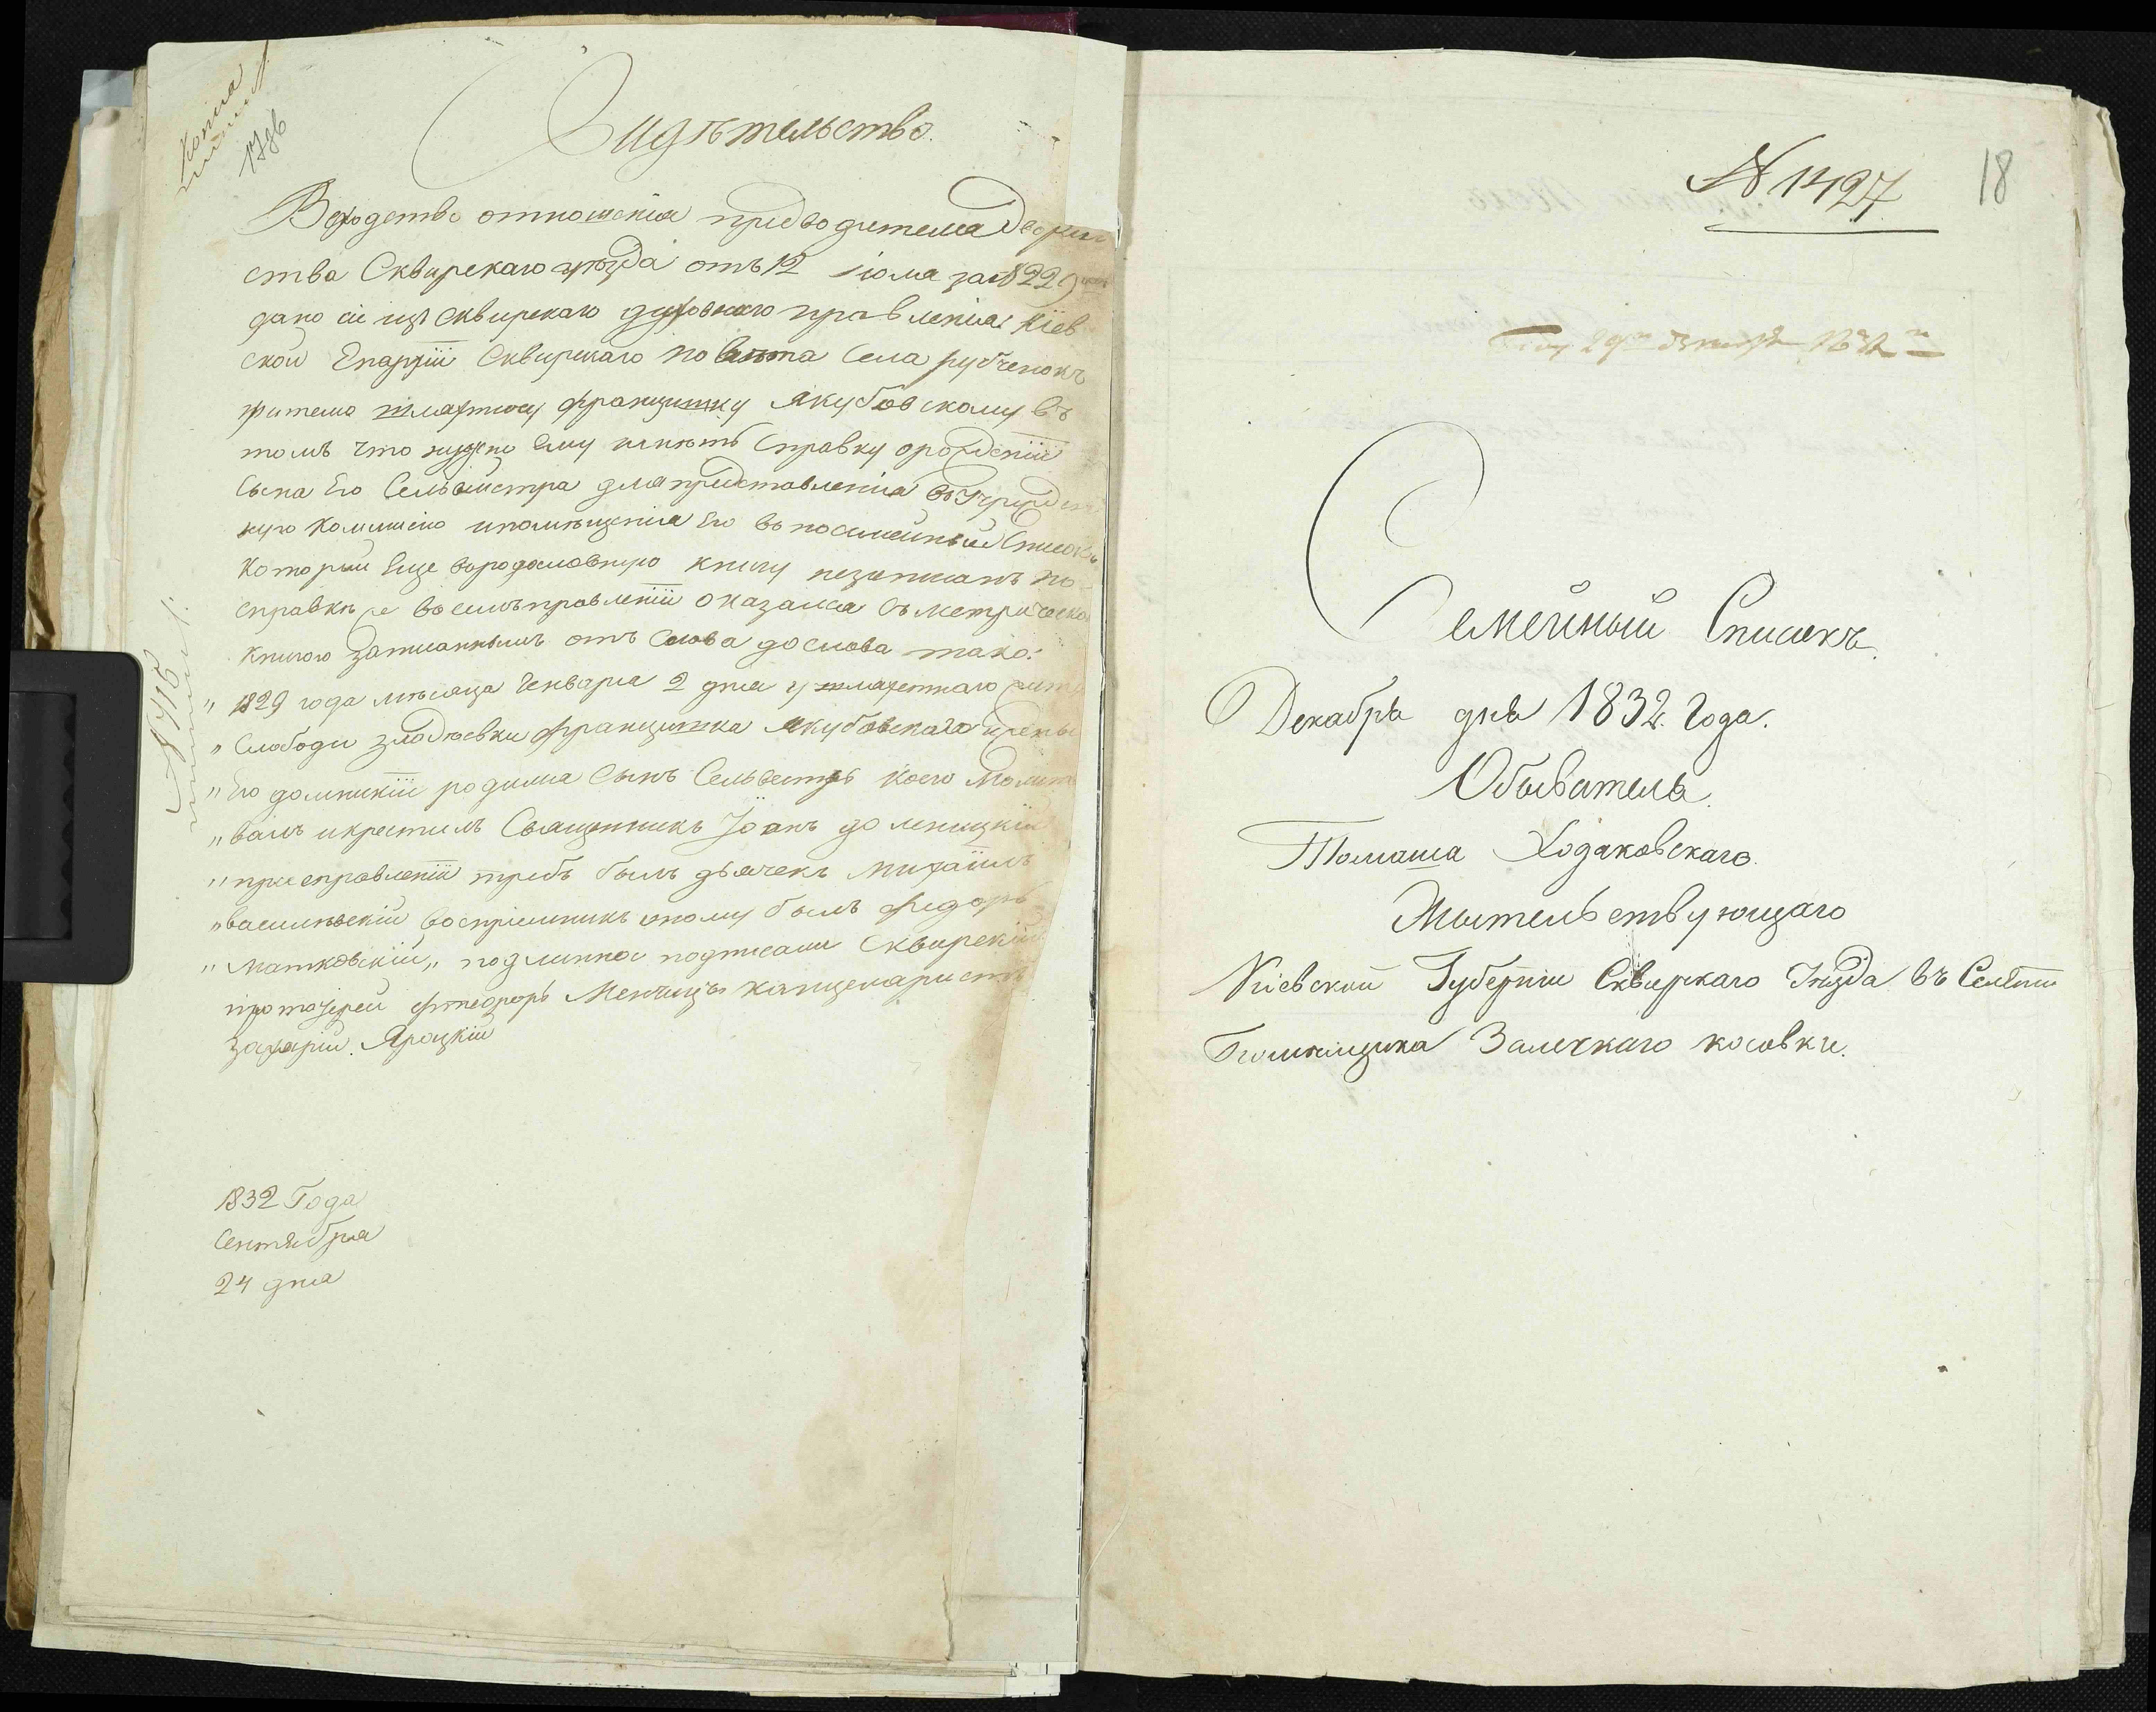 Копиа
Видѣтельство.
Всходство отношенія предводителя Дворян
ства Сквирскаго уѣзда отъ 12 Іюля за № 229
дано сіе изъ Сквирскаго духовнаго правленія Кіев
ской Епархіи Сквирскаго повѣта Села рубченокъ
жителю шляхтичу францишку Якубовскому въ
томъ что нужно Ему имѣть Справку орожденіи
Сына Его Сельвестра дляпредставленія въ Учрежден
ную Коммисію ипомѣщенія Его въ посемейный Списокъ
Которий Еще вородословную книгу незаписанъ по
справкѣ же восемъправленіи оказался въ метрической
книгою Записаннымъ отъ Слова дослова тако:
" 1829 года мѣсяца Генваря 2 дня у шляхетнаго жителя
" Слободи злодѣевки францишка Якубовскаго ижены
" Его домникіи родился Сынъ Сельвестръ коего Молитво
" валъ икрестилъ Священникъ Іоанъ доленицкій
" приисправленіи требъ былъ дьячекъ Михаилъ
" василевскій воспріемникъ оному былъ Федоръ
" Матковскій " подлинное подписали Сквирскій
протоіерей фтеодоръ Менчицъ канцеляристъ
захарій Яроцкій
1832 Года
Сентября
24 дня
№ 1427
18
Семейный Списокъ.
Декабря дня 1832 Года.
Обыватель
Томаша Ходаковскаго.
Жительствующаго
Кіевской Губерніи Сквирскаго Уѣзда въ Селѣніи
Помѣщика Залескаго косовки.